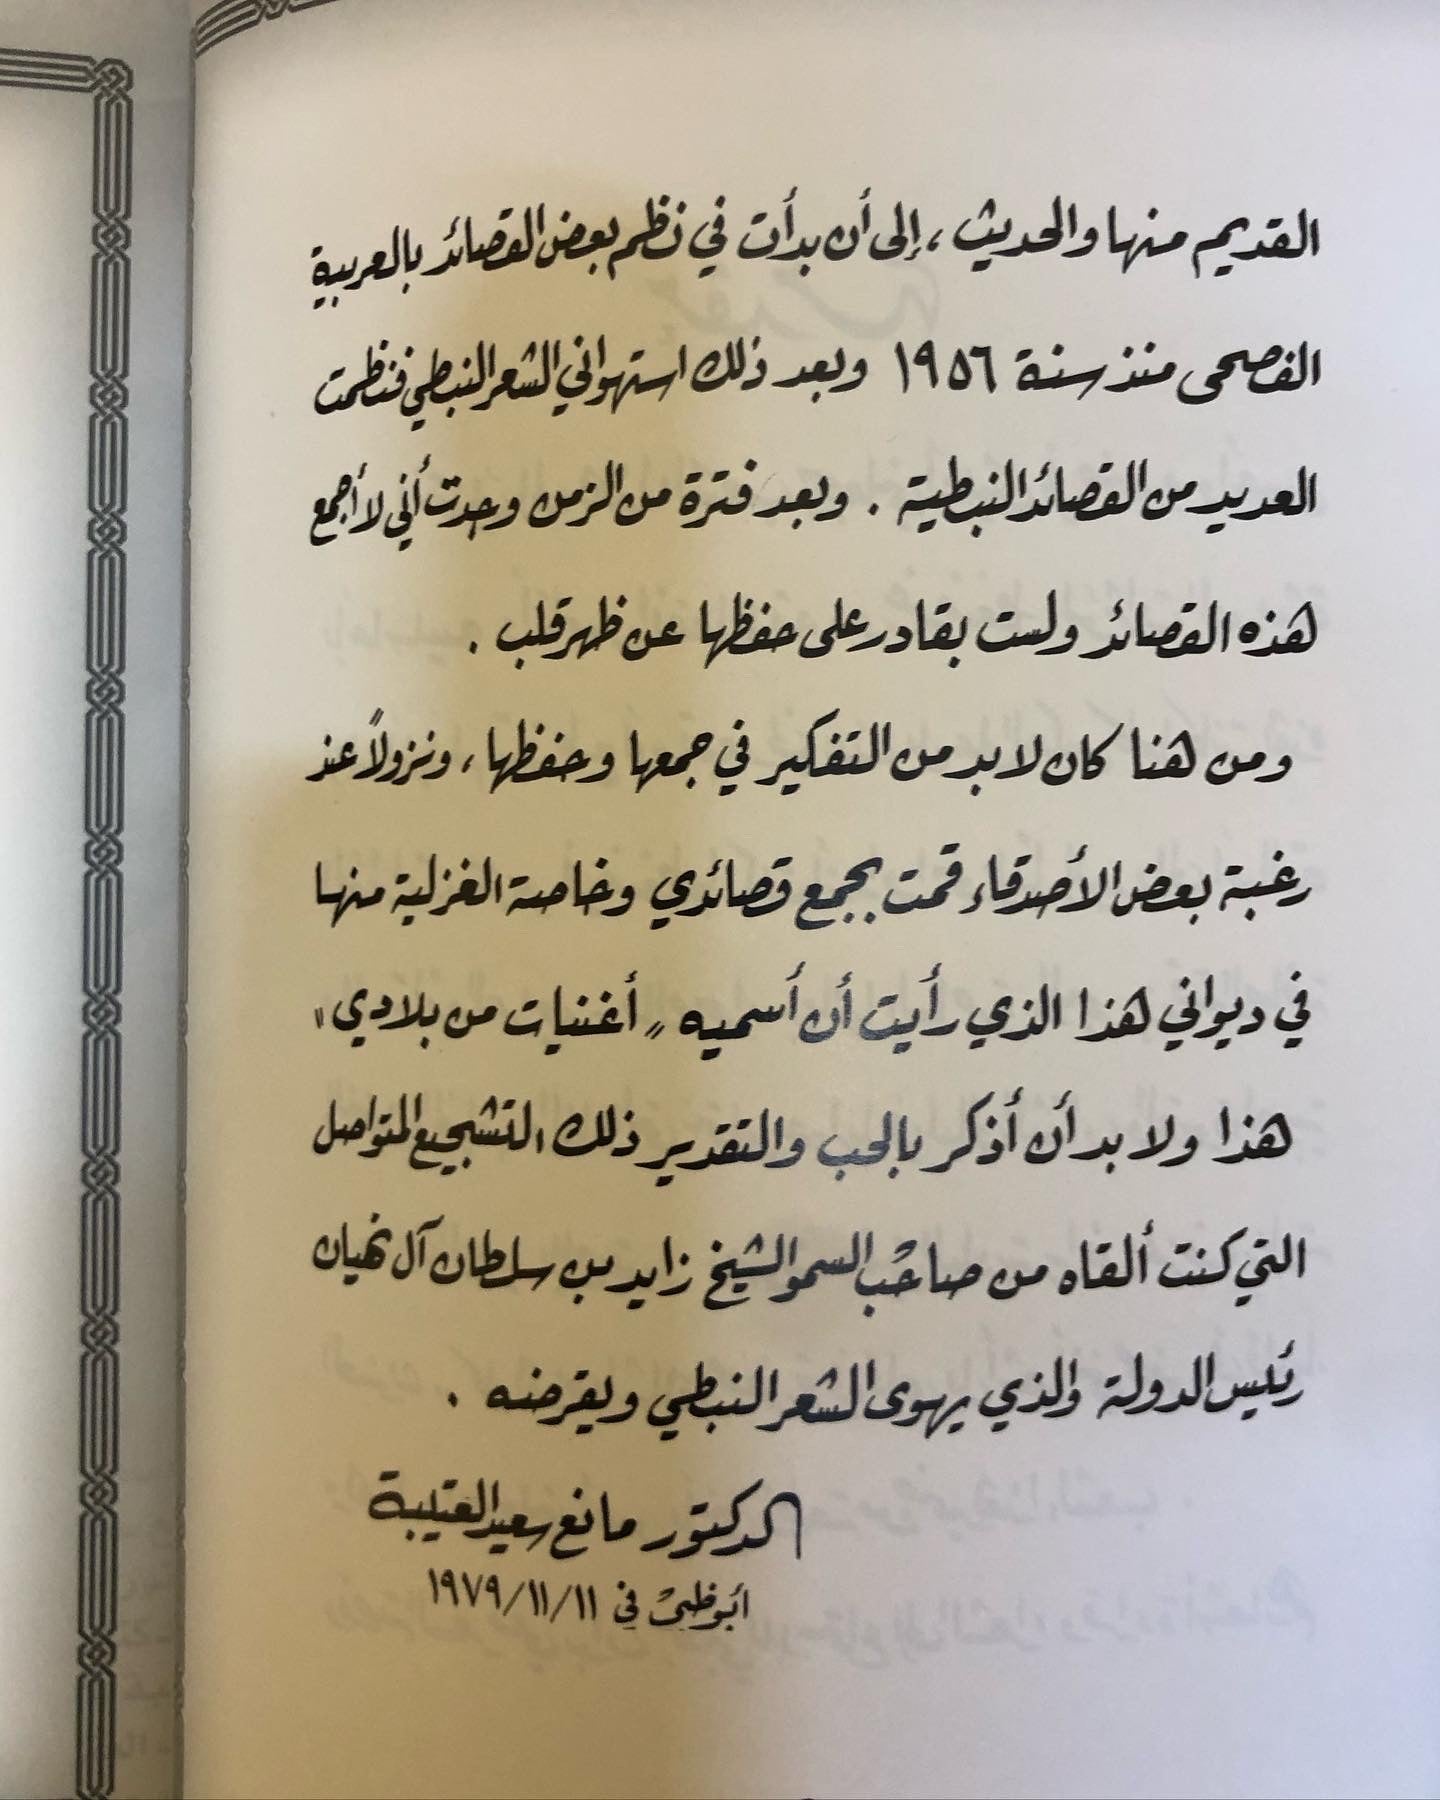 القديم منها والحديث ، إلى أن بدأت في نظم بعض القصائد بالعربية
الفصحى منذ سنة ١٩٥٦ وبعد ذلك استهواني الشعر النبطي فنظمت
العديد من القصائد النبطية . وبعد فترة من الزمن وجدت أني لا أجمع
هذه القصائد ولست بقادر على حفظها عن ظهر قلب .
ومن هنا كان لا بد من التفكير في جمعها وحفظها ، ونزولاً عند
رغبة بعض الأصدقاء قمت بجمع قصائدي وخاصة الغزلية منها
في ديواني هذا الذي رأيت أن أسميه " أغنيات من بلادي "
هذا ولا بد أن أذكر بالحب والتقدير ذلك التشجيع المتواصل
التي كنت ألقاه من صاحب السمو الشيخ زايد بن سلطان آل نهيان
رئيس الدولة والذي يهوى الشعر النبطي ويقرضه .
الدكتور مانع سعيد العتيبة
أبوظبي في ١٩٧٩/١١/١١